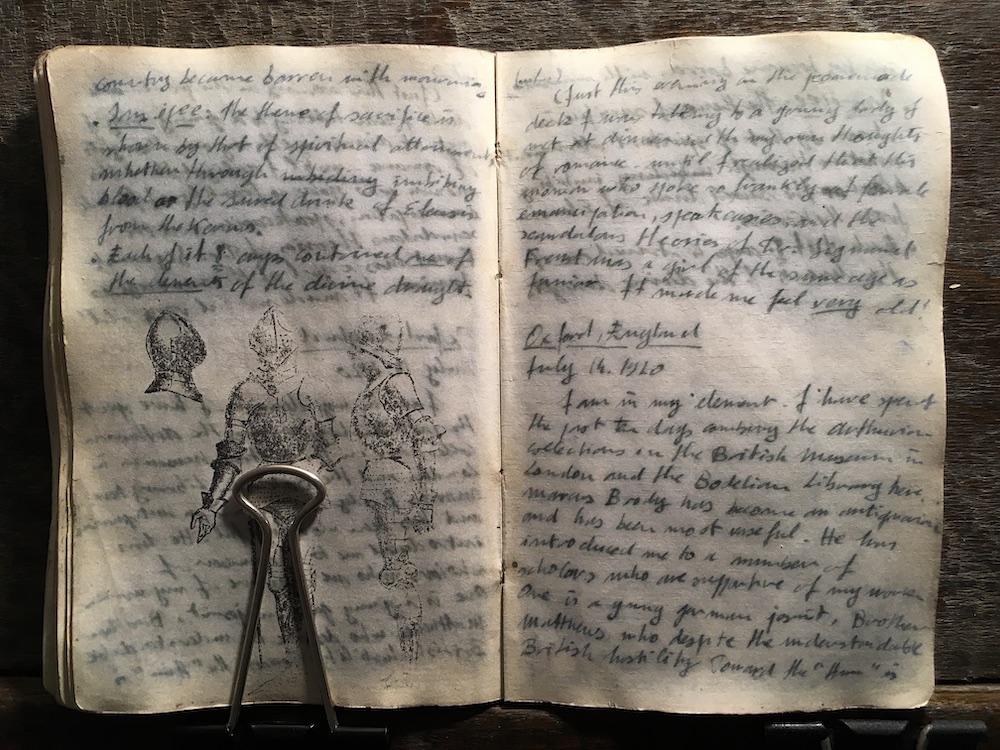 country became barren with mourning
. Images: the theme of sacrifice is
shown by that of spiritual attainment
whether through imbibing imbibing
blood or the sacred drink of Eleusis
from the
. Each of it 8 cups contained one of
the elements of the divine draught.
(Just this evening on the promenade
deck I was talking to a young lady I
met at dinner with my own thoughts
of romance until I realized that this
woman who spoke so frankly of female
emancipation, speakeasies and the
scandalous theories of Dr. Sigmund
Freud was a girl of the same age as
Junior. It made me feel very old!
Oxford, England
July 14. 1920
I am in my element. I have spent
the past ten days combing the Arthurian
collections in the British Museum in
London and the Bodelian Library here.
Marcus Brody has become an antiquarian
and has been most useful. He has
introduced me to a number of
scholars who are supportive of my work
One is a young german jesuit, Brother
Matthius who despite the understandable
British hostility toward the "Hun" is